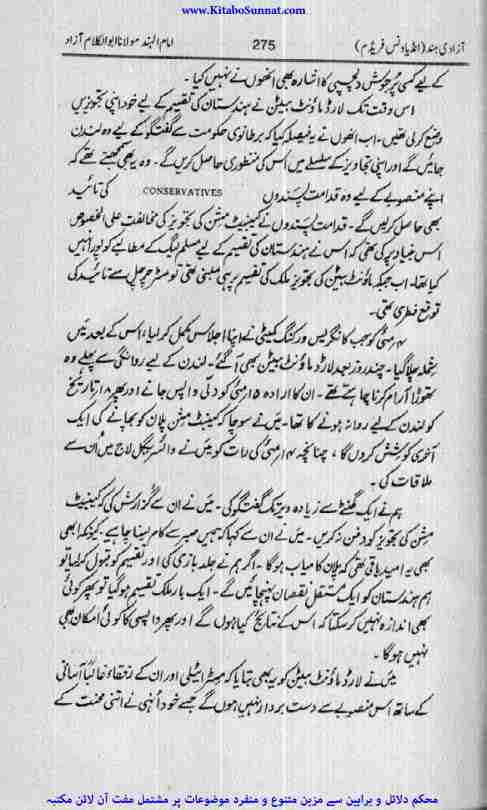 www.KitaboSunnat.com
آزادی ہند (انڈیا ونس فریڈم) 275 امام الہند مولانا ابوالکلام آزاد
کے لیے کسی پُرجوش دلچسپی کا اشارہ بھی انھوں نے نہیں کیا۔
اس وقت تک لارڈ ماؤنٹ بیٹن نے ہندستان کی تقسیم کے لیے خود اپنی تجویزیں
وضع کرلی تھیں۔ اب انھوں نے یہ فیصلہ کیا کہ برطانوی حکومت سے گفتگو کے لیے وہ لندن
جائیں گے اور اپنی تجاویز کے سلسلے میں اُس کی منظوری حاصل کریں گے۔ وہ یہ بھی سمجھتے تھے کہ
اپنے منصوبے کے لیے وہ قدامت پسندوں CONSERVATIVES کی تائید
بھی حاصل کرلیں گے۔ قدامت پسندوں نے کیبنیٹ مشن کی تجویز کی مخالفت علی الخصوص
اس بنیاد پر کی تھی کہ اس نے ہندستان کی تقسیم کے لیے مسلم لیگ کے مطالبے کو پورا نہیں
کیا تھا۔ اب جبکہ ماؤنٹ بیٹن کی تجویز ملک کی تقسیم پر ہی مبنی تھی تو مسٹر چرچل سے تائید کی
توقع فطری تھی۔
۴ مئی کو جب کانگریس ورکنگ کمیٹی نے اپنا اجلاس مکمل کرلیا، اس کے بعد میں
شملہ چلا گیا۔ چند روز بعد لارڈ ماؤنٹ بیٹن بھی آگئے۔ لندن کے لیے روانگی سے پہلے وہ
تھوڑا آرام کرنا چاہتے تھے۔ ان کا ارادہ ۱۵ مئی کو دلّی واپس جانے اور پھر ۱۸ تاریخ
کو لندن کے لیے روانہ ہونے کا تھا۔ میں نے سوچا کہ کیبنیٹ مشن پلان کو بچانے کی ایک
آخری کوشش کروں گا، چنانچہ ۱۴ مئی کی رات کو میں نے وائسریگل لاج میں اُن سے
ملاقات کی۔
ہم نے ایک گھنٹے سے زیادہ دیر تک گفتگو کی۔ میں نے ان سے گزارش کی کہ کیبنیٹ
مشن کی تجویز کو دفن نہ کریں۔ میں نے ان سے کہا کہ ہمیں صبر سے کام لینا چاہیے، کیونکہ ابھی
بھی یہ امید باقی تھی کہ پلان کامیاب ہوگا۔ اگر ہم نے جلد بازی کی اور تقسیم کو قبول کرلیا تو
ہم ہندستان کو ایک مستقل نقصان پہنچائیں گے۔ ایک بار ملک تقسیم ہوگیا تو پھر کوئی
بھی اندازہ نہیں کرسکتا کہ اس کے نتائج کیا ہوں گے اور پھر واپسی کا کوئی امکان بھی
نہیں ہوگا۔
میں نے لارڈ ماؤنٹ بیٹن کو یہ بھی بتایا کہ مسٹر ایٹلی اور ان کے رفقاء غالباً آسانی
کے ساتھ اس منصوبے سے دست بردار نہیں ہوں گے جسے خود اُنہی نے اتنی محنت کے
محکم دلائل و براہین سے مزین متنوع و منفرد موضوعات پر مشتمل مفت آن لائن مکتبہ